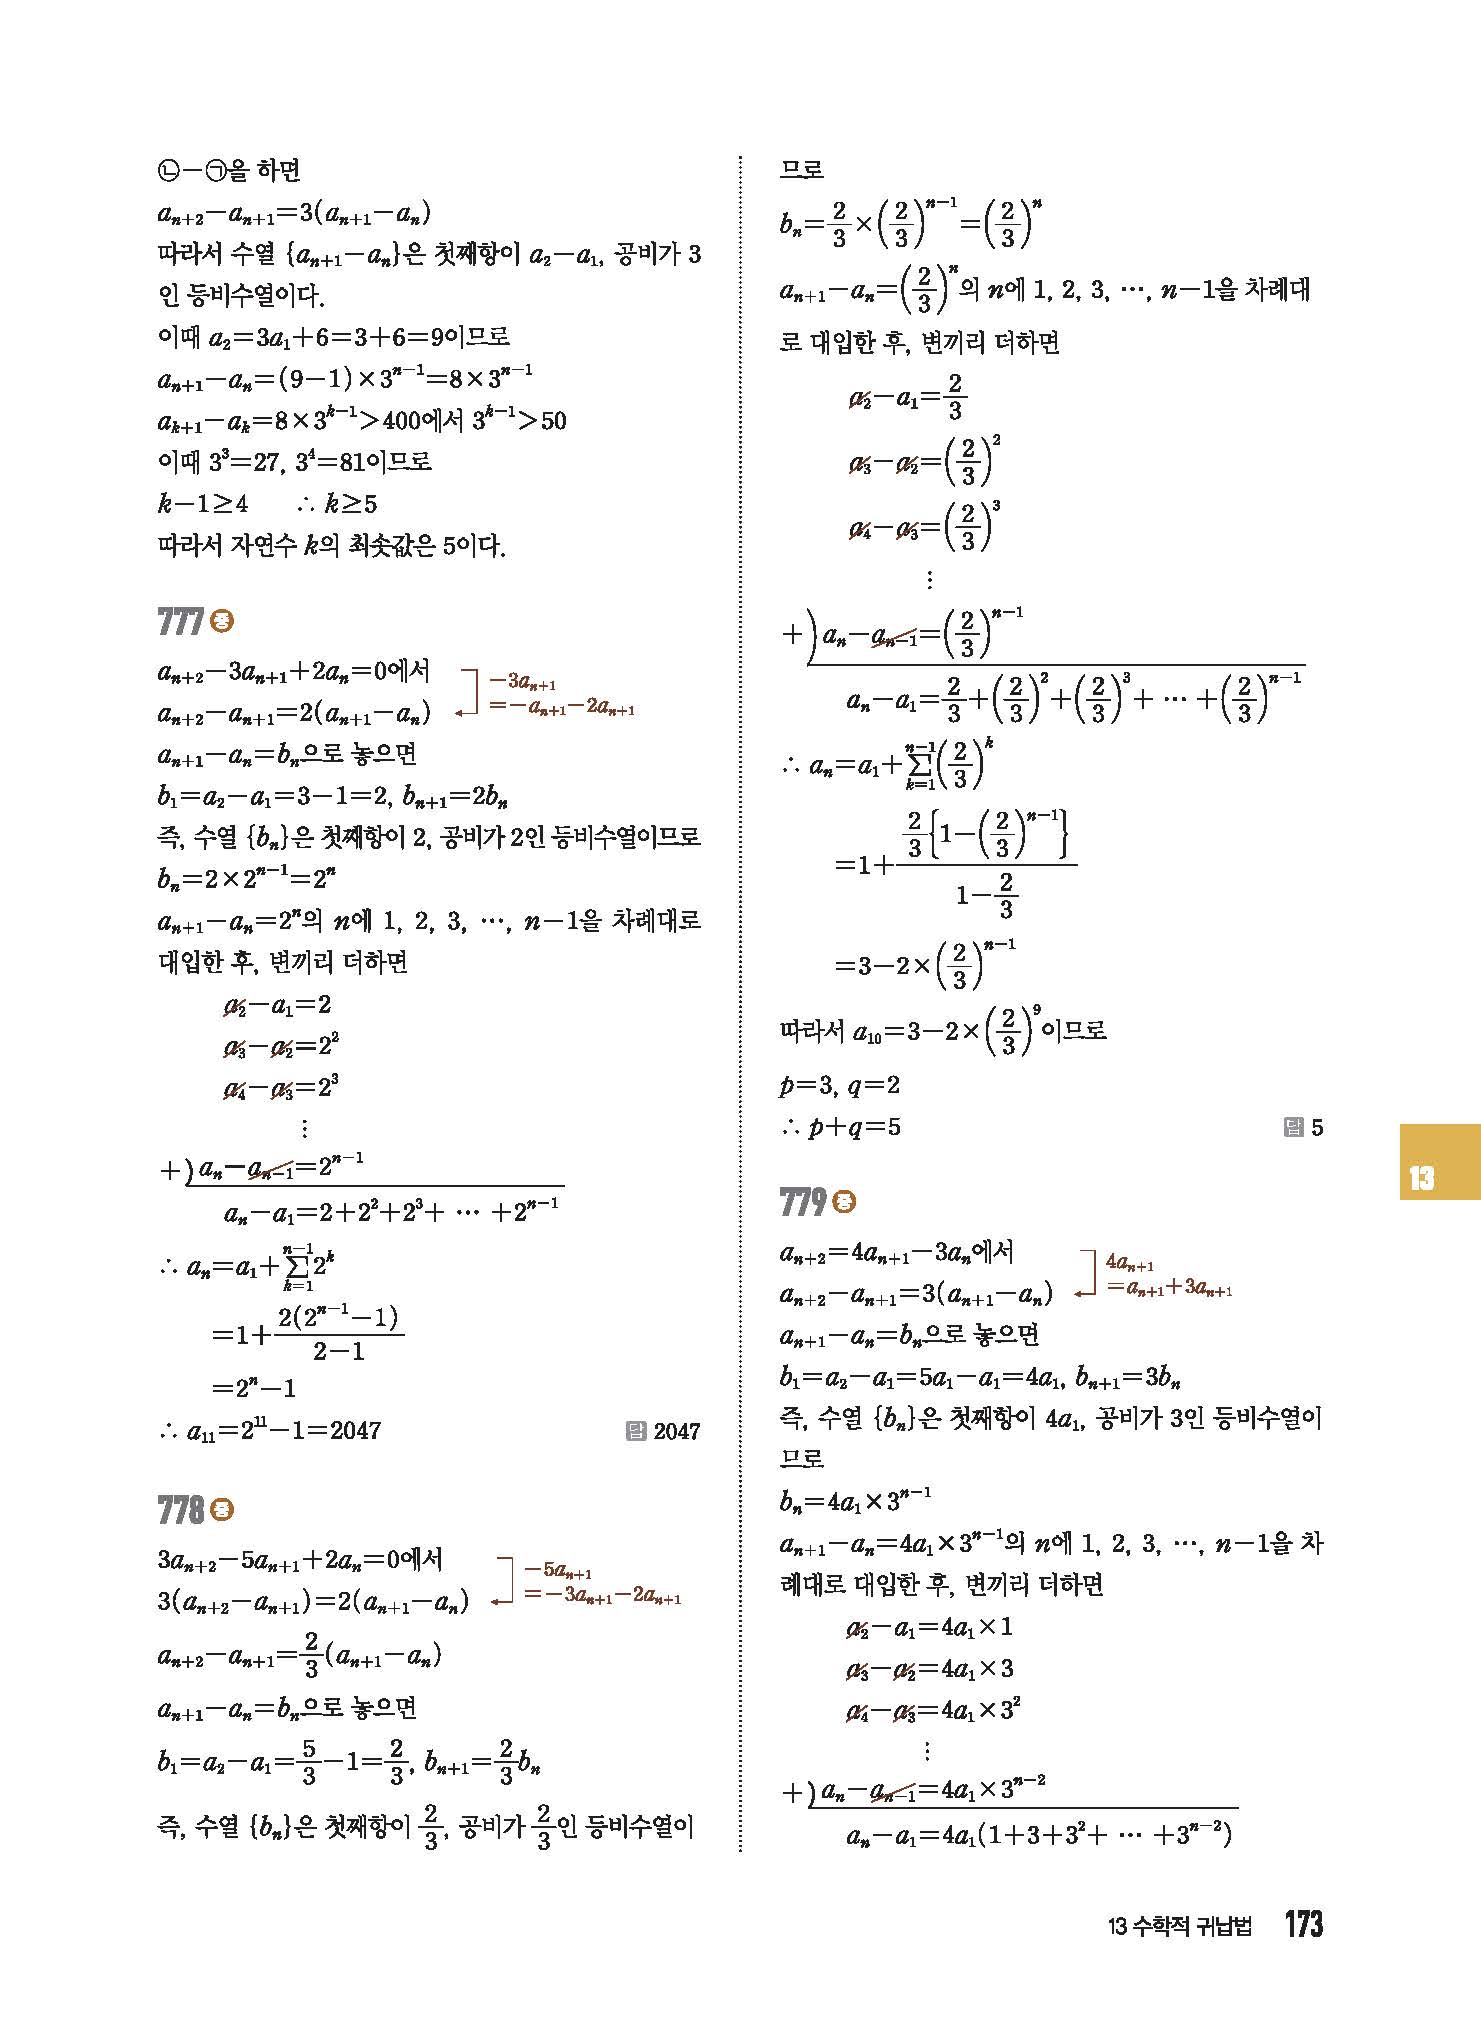 ㉡-㉠을 하면
aₙ₊₂-aₙ₊₁=3(aₙ₊₁-aₙ)
따라서 수열 {aₙ₊₁-aₙ}은 첫째항이 a₂-a₁, 공비가 3
인 등비수열이다.
이때 a₂=3a₁+6=3+6=9이므로
aₙ₊₁-aₙ=(9-1)×3ⁿ⁻¹=8×3ⁿ⁻¹
aₖ₊₁-aₖ=8×3ᵏ⁻¹>400에서 3ᵏ⁻¹>50
이때 3³=27, 3⁴=81이므로
k-1≥4 ∴ k≥5
따라서 자연수 k의 최솟값은 5이다.
777 중
aₙ₊₂-3aₙ₊₁+2aₙ=0에서
-3aₙ₊₁
aₙ₊₂-aₙ₊₁=2(aₙ₊₁-aₙ)
=-aₙ₊₁-2aₙ₊₁
aₙ₊₁-aₙ=bₙ으로 놓으면
b₁=a₂-a₁=3-1=2, bₙ₊₁=2bₙ
즉, 수열 {bₙ}은 첫째항이 2, 공비가 2인 등비수열이므로
bₙ=2×2ⁿ⁻¹=2ⁿ
aₙ₊₁-aₙ=2ⁿ의 n에 1, 2, 3, ⋯, n-1을 차례대로
대입한 후, 변끼리 더하면
a₂-a₁=2
a₃-a₂=2²
a₄-a₃=2³
⋮
+) aₙ-aₙ₋₁=2ⁿ⁻¹
aₙ-a₁=2+2²+2³+ ⋯ +2ⁿ⁻¹
∴ aₙ=a₁+∑_{k=1}^{n-1} 2ᵏ
=1+\frac{2(2ⁿ⁻¹-1)}{2-1}
=2ⁿ-1
∴ a₁₁=2¹¹-1=2047 답 2047
778 중
3aₙ₊₂-5aₙ₊₁+2aₙ=0에서
-5aₙ₊₁
3(aₙ₊₂-aₙ₊₁)=2(aₙ₊₁-aₙ)
=-3aₙ₊₁-2aₙ₊₁
aₙ₊₂-aₙ₊₁=\frac{2}{3}(aₙ₊₁-aₙ)
aₙ₊₁-aₙ=bₙ으로 놓으면
b₁=a₂-a₁=\frac{5}{3}-1=\frac{2}{3}, bₙ₊₁=\frac{2}{3}bₙ
즉, 수열 {bₙ}은 첫째항이 \frac{2}{3}, 공비가 \frac{2}{3}인 등비수열이
므로
bₙ=\frac{2}{3}×(\frac{2}{3})ⁿ⁻¹=(\frac{2}{3})ⁿ
aₙ₊₁-aₙ=(\frac{2}{3})ⁿ의 n에 1, 2, 3, ⋯, n-1을 차례대
로 대입한 후, 변끼리 더하면
a₂-a₁=\frac{2}{3}
a₃-a₂=(\frac{2}{3})²
a₄-a₃=(\frac{2}{3})³
⋮
+) aₙ-aₙ₋₁=(\frac{2}{3})ⁿ⁻¹
aₙ-a₁=\frac{2}{3}+(\frac{2}{3})²+(\frac{2}{3})³+ ⋯ +(\frac{2}{3})ⁿ⁻¹
∴ aₙ=a₁+∑_{k=1}^{n-1} (\frac{2}{3})ᵏ
=1+\frac{\frac{2}{3}{1-(\frac{2}{3})ⁿ⁻¹}}{1-\frac{2}{3}}
=3-2×(\frac{2}{3})ⁿ⁻¹
따라서 a₁₀=3-2×(\frac{2}{3})⁹이므로
p=3, q=2
∴ p+q=5 답 5
779 중
aₙ₊₂=4aₙ₊₁-3aₙ에서
4aₙ₊₁
aₙ₊₂-aₙ₊₁=3(aₙ₊₁-aₙ)
=aₙ₊₁+3aₙ₊₁
aₙ₊₁-aₙ=bₙ으로 놓으면
b₁=a₂-a₁=5a₁-a₁=4a₁, bₙ₊₁=3bₙ
즉, 수열 {bₙ}은 첫째항이 4a₁, 공비가 3인 등비수열이
므로
bₙ=4a₁×3ⁿ⁻¹
aₙ₊₁-aₙ=4a₁×3ⁿ⁻¹의 n에 1, 2, 3, ⋯, n-1을 차
례대로 대입한 후, 변끼리 더하면
a₂-a₁=4a₁×1
a₃-a₂=4a₁×3
a₄-a₃=4a₁×3²
⋮
+) aₙ-aₙ₋₁=4a₁×3ⁿ⁻²
aₙ-a₁=4a₁(1+3+3²+ ⋯ +3ⁿ⁻²)
13
13 수학적 귀납법 173